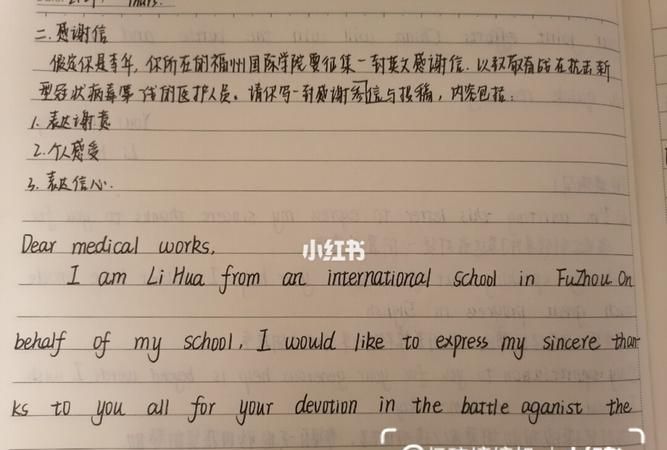 Thurs.
二.感谢信
假定你是李华,你所在的福州国际学院要征集一封英文感谢信.以致敬奋战在抗击新
型冠状病毒第一线的医护人员。请你写一封感谢信与投稿,内容包括:
1.表达谢意
2.个人感受
3.表达信心.
Dear medical works,
小红书
I am Li Hua from an international school in FuZhou. On
behalf of my school, I would like to express my sincere than-
ks to you all for your devotion in the battle aganist the